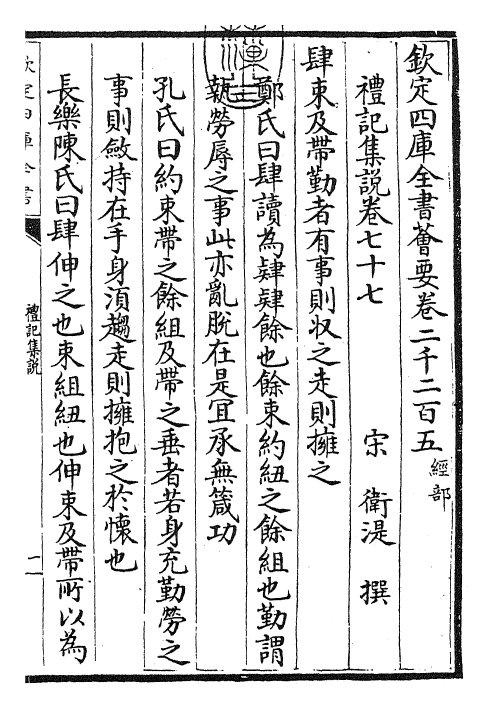 欽定四庫全書薈要卷二千二百五 經部
禮記集說卷七十七
宋 衛湜 撰
肆束及帶勤者有事則収之走則擁之
鄭氏曰肆讀為肄肄餘也餘束約紐之餘組也勤謂
執勞辱之事此亦亂脫在是冝承無箴功
孔氏曰約束帶之餘組及帶之垂者若身充勤勞之
事則斂持在手身湏趨走則擁抱之於懐也
長樂陳氏曰肆伸之也束組紐也伸束及帶所以為
欽定四庫全書
禮記集說
一